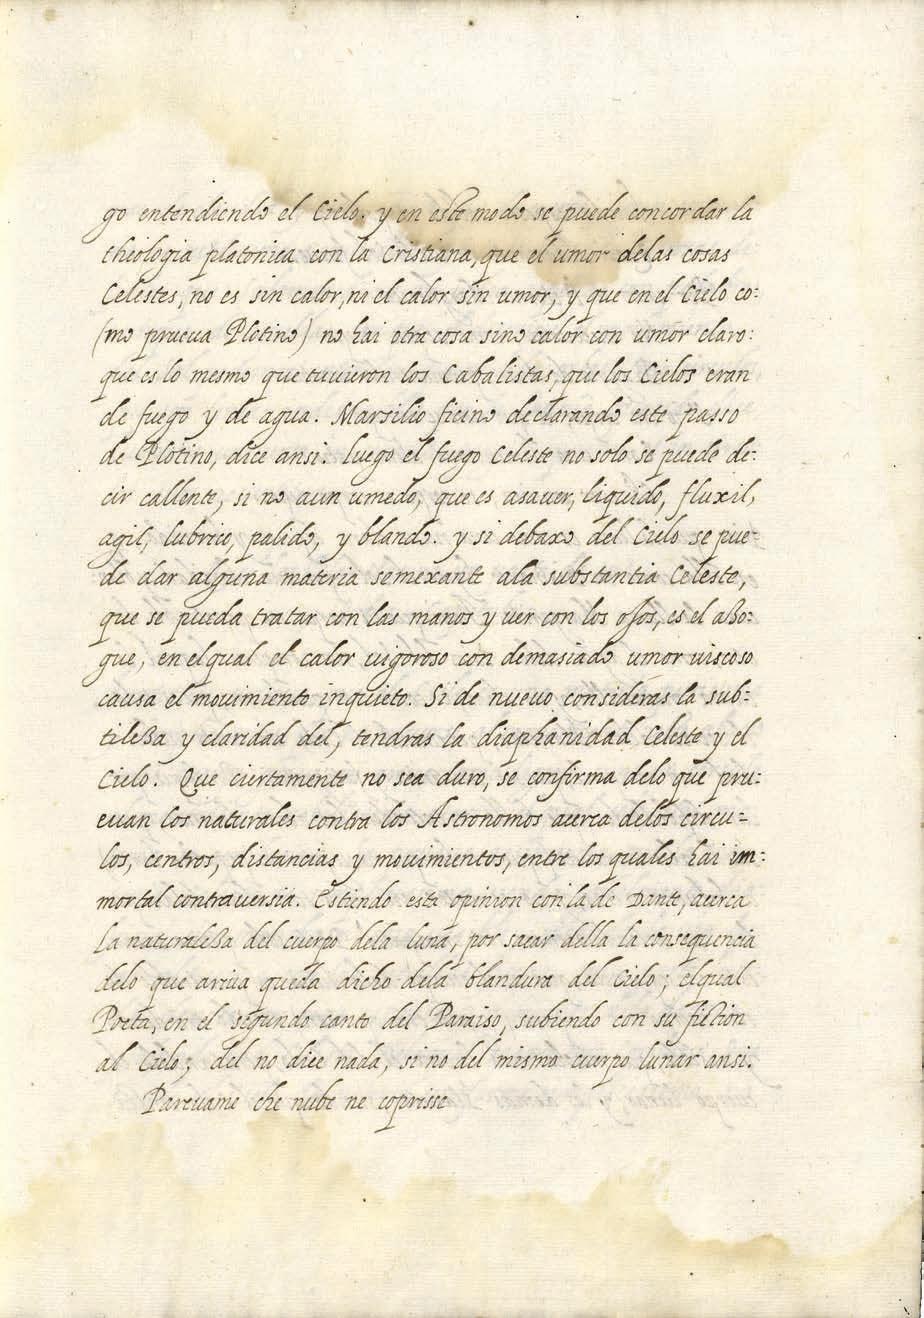 go entendiendo el Cielo. y en este modo se puede concordar la
theologia platonica con la Cristiana, que el umor delas cosas
Celestes, no es sin calor, ni el calor sin umor, y que en el Cielo co:
(mo prueua Plotino) no hai otra cosa sino calor con umor claro:
que es lo mesmo que tuuieron los Cabalistas, que los Cielos eran
de fuego y de agua. Marsilio ficino declarando este passo
de Plotino, dice ansi. luego el fuego Celeste no solo se puede de:
cir callente, si no aun umedo, que es asauer, liquido, fluxil,
agil, lubrico, palido, y blando. y si debaxo del Cielo se pue-
de dar alguna materia semexante ala substantia Celeste,
que se pueda tratar con las manos y ver con los ojos, es el aßo-
gue, en elqual el calor vigoroso con demasiado umor viscoso
causa el mouimiento inquieto. Si de nueuo consideras la sub-
tileßa y claridad del, tendras la diaphanidad Celeste y el
Cielo. Que ciertamente no sea duro, se confirma delo que pru:
euan los naturales contra los Astronomos acerca delos circu-
los, centros, distancias y mouimientos, entre los quales hai im:
mortal contrauersia. Estiendo esta opinion con la de Dante, acerca
la naturaleßa del cuerpo dela luna, por sacar della la consequencia
delo que arriua queda dicho dela blandura del Cielo; elqual
Poeta, en el segundo canto del Paraiso, subiendo con su fiction
al Cielo; del no dice nada, si no del mismo cuerpo lunar ansi.
Pareuame che nube ne coprisse